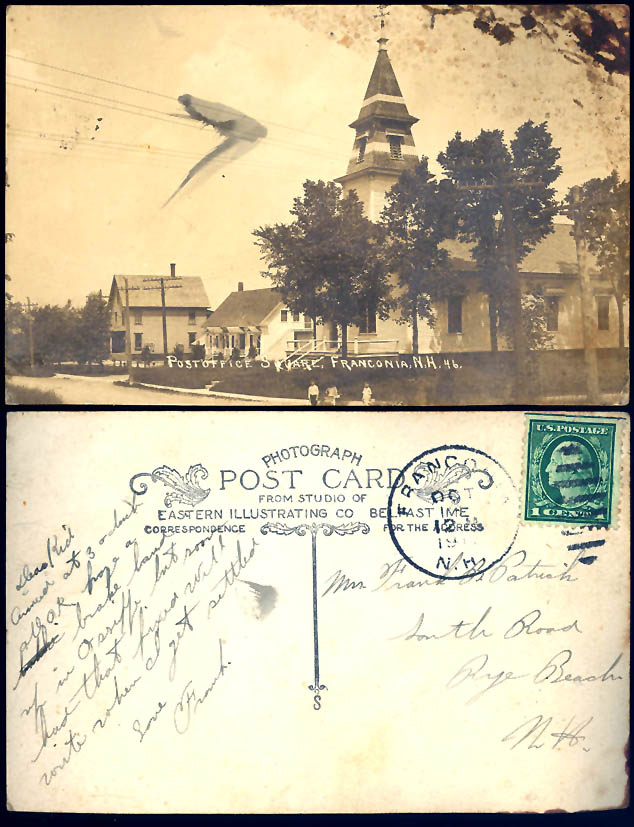 POSTOFFICE SQUARE, FRANCONIA, N.H. 46.
PHOTOGRAPH
POST CARD
FROM STUDIO OF
EASTERN ILLUSTRATING CO BELFAST ME
CORRESPONDENCE
FOR THE ADDRESS
S
FRANCONIA
OCT
12
N.H.
U.S. POSTAGE
1 CENTS 1
Dear Kid
arrived at 3 o'clock
all OK. broke a
brake band
up in Ossipee, but soon
had that fixed will
write when I get settled
Love
Frank.
Mrs Frank B. Patrick
South Road
Rye Beach
N.H.